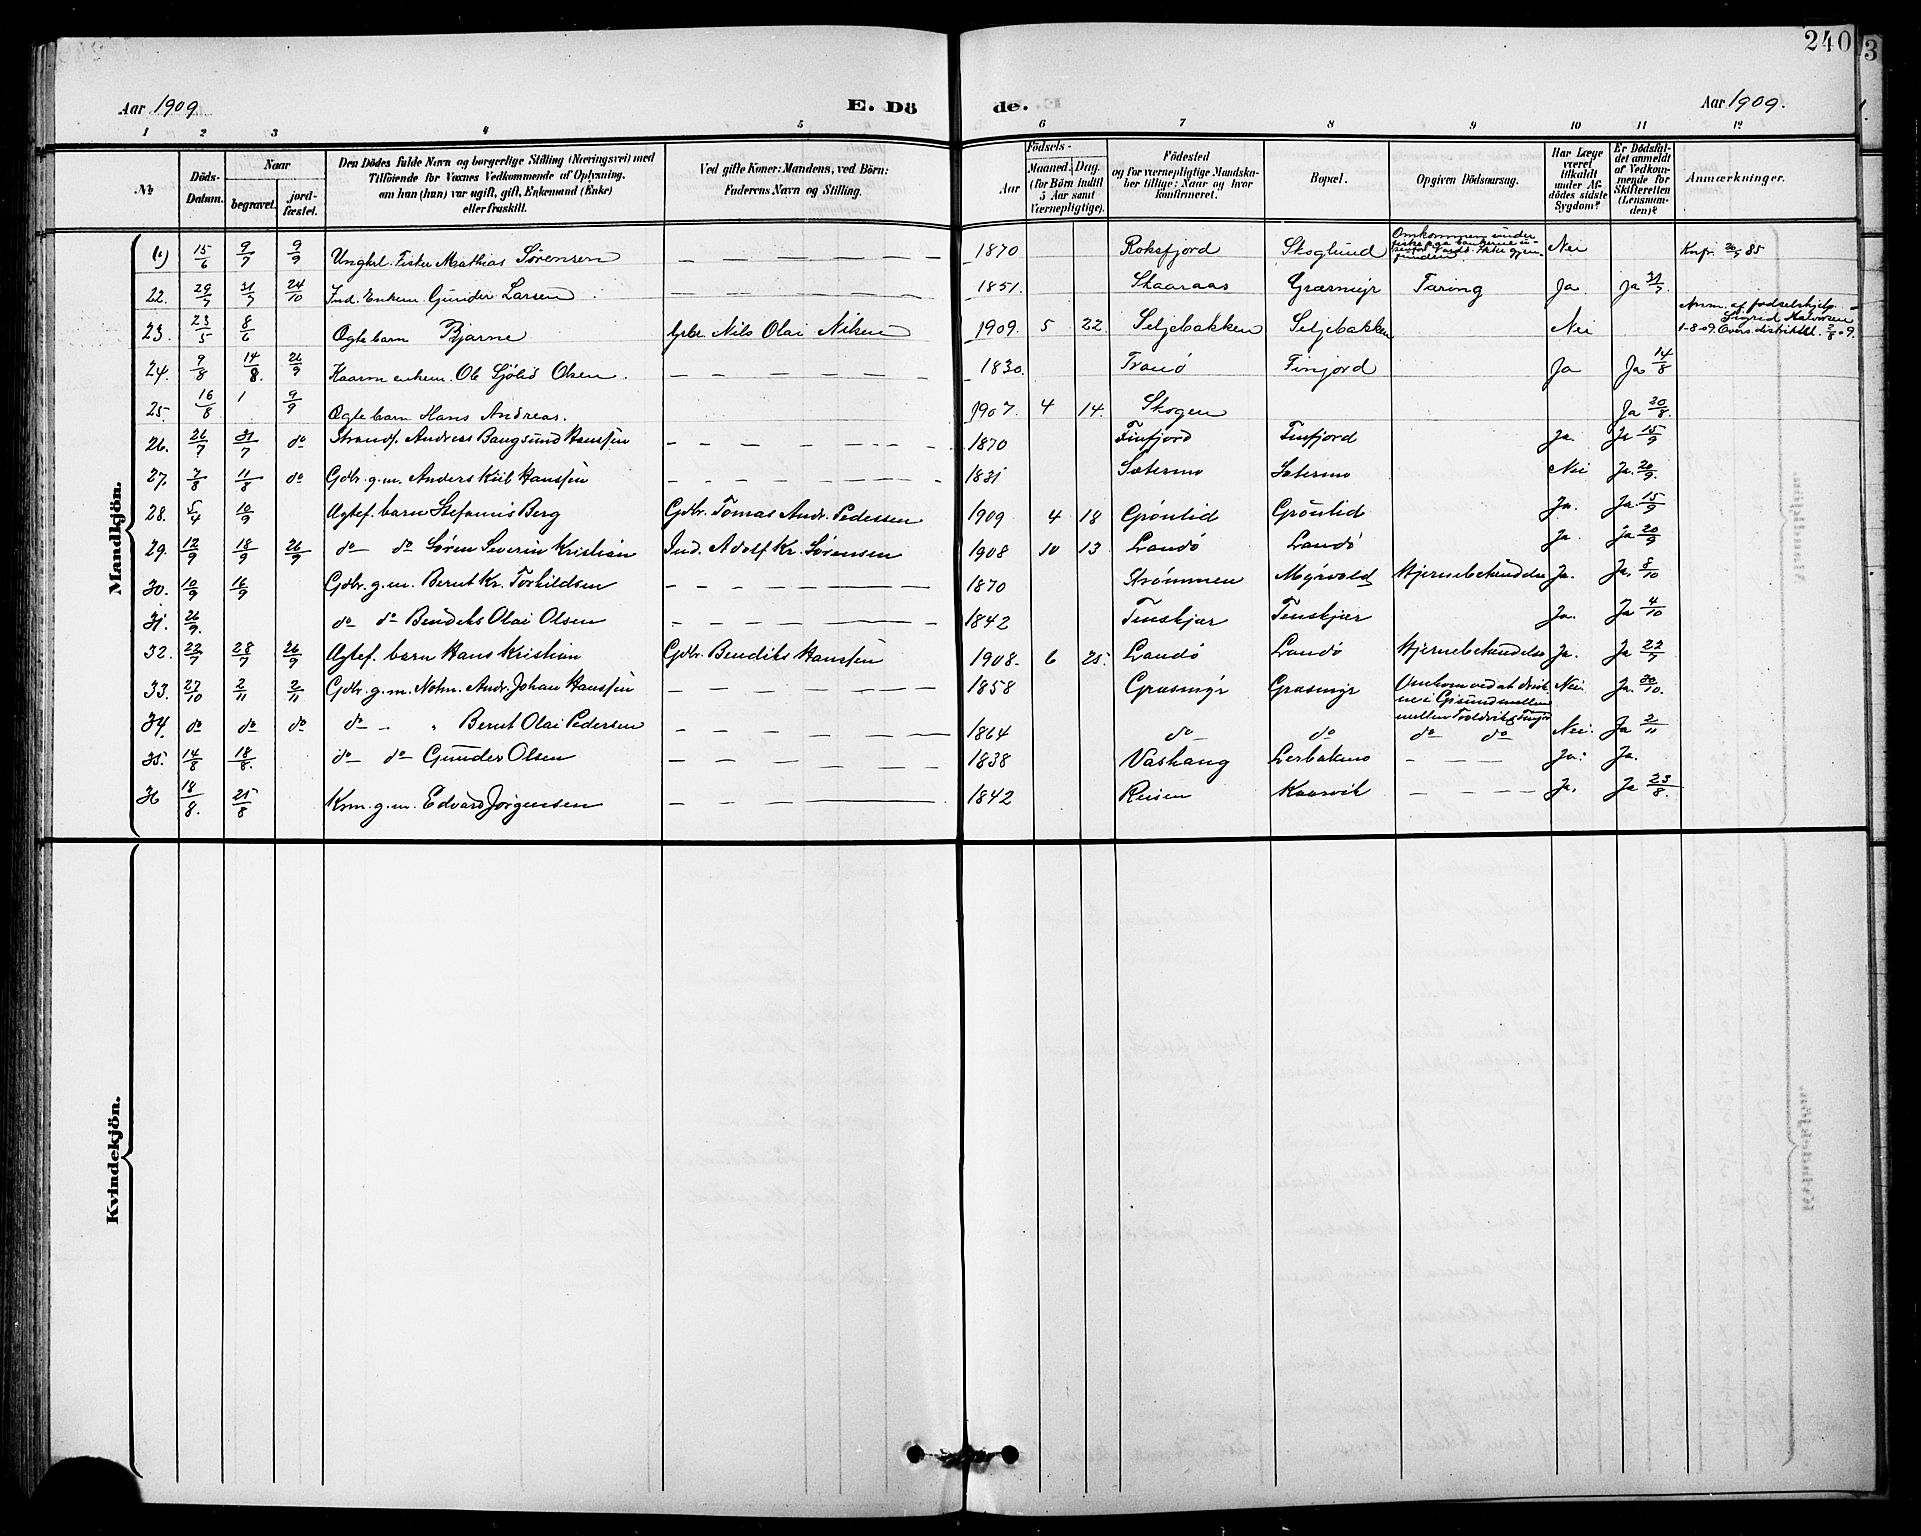 240
3
Aar 1909
E. Dö
de.
Aar 1909.
1 2 3 4 5 6 7 8 9 10 11 12
No
Döds-Datum.
Naar
begravet.
jord-fæstet.
Den Dödes fulde Navn og borgerlige Stilling (Næringsvei) med
Tilföiende for Voxnes Vedkommende af Oplysning,
om han (hun) var ugift, gift, Enkemand (Enke)
eller fraskilt.
Ved gifte Koner: Mandens, ved Börn:
Faderens Navn og Stilling.
Födsels-
Aar
Maaned. Dag.
(for Börn indtil
5 Aar samt
Værnepligtige).
Födested
og for værnepligtige Mandska-
ber tillige: Naar og hvor
konfirmeret.
Bopæl.
Opgiven Dödsaarsag.
Har Læge
været
tilkaldt
under Af-
dödes sidste
Sygdom?
Er Dödsfal-
det anmeldt
af Vedkom-
mende for
Skifteretten
(Lensman-
den)?
Anmærkninger.
Mandkjön.
15/6 9/7 9/9 Ungkrl. Fisker Mathias Sörensen — 1870 Roksfjord Skoglund Omkommen under Nei Knfr. 26/9 85
22. 29/7 31/7 24/10 Ind. Enkem. Gunder Larsen — 1851. Skaaraas Græsmyr Tæring Ja Ja 31/7
23. 23/5 8/6 Ægte barn Bjarne Gbr. Nils Olai Nilsen 1909. 5 22. Seljebakken Seljebakken Nei Anm. af fodselshjelp. Sigrid Halvorsen 1-8-09.
24. 9/8 14/8. 26/9 Kaarm enkem. Ole Sjölid Olsen. — 1830. Tranö Finjord Ja Ja 14/8
25. 16/8 1 9/9 Ægte barn Hans Andreas. 1907. 4 14. Skogen Ja 30/8.
26. 26/7 31/7 do Strands. Andreas Bangsund Hanssen — 1870 Finfjord Finfjord Ja. Ja 15/9
27. 7/8 11/8 do Gdbr. g.m. Anders Kiil Hanssen — 1831 Sætermo Sætermo Nei Ja. 20/9.
28. 5/4 10/9 Ægtef. barn Stefanus Berg Gdbr. Tomas Andr. Pedersen 1909 4 18 Grönlid Grönlid Ja. Ja. 15/9
29. 12/9 18/9 26/9 do do Sören Severin Kristian Ind. Adolf Kr. Sörensen 1908 10 13 Landö Landö Ja. Ja 20/9
30. 10/9 16/9 Gdbr. g.m. Bernt Kr. Torkildsen — 1870 Strömmen Myrvold Hjernebetændelse Ja. Ja. 8/10
31. 26/9. do do Bendiks Olai Olsen — 1842 Finskjær Finskjær Ja. Ja 4/10
32. 22/7 28/7 26/9 Ægtef. barn Hans Kristian Gdbr. Bendiks Hanssen 1908. 6 25. Landö Landö Hjernebetændelse Ja. Ja 22/7
33. 27/10 2/11 2/11 Gdbr. g.m. Nohn. Andr. Johan Hanssen — 1858 Græsmyr Græsmyr Omkom ved at drukne i Gisund mellem Nei. Ja. 30/10.
34. do do do do — " Bernt Olai Pedersen — 1864 do do do do Nei. Ja 2/11
35. 14/8 18/8. do do Gunder Olsen — 1838 Vashaug Lerbakmo — Ja. Ja.
36 18/8. 25/8 Krm. g.m. Edvard Jörgensen — 1842 Reisen Kaarvik — Ja. Ja 23/8.
Kvindekjön.